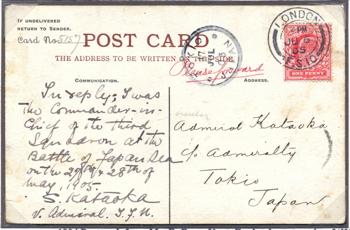 IF UNDELIVERED
RETURN TO SENDER.
Card No 5157
POST CARD
THE ADDRESS TO BE WRITTEN ON THIS SIDE.
Please forward
COMMUNICATION.
ADDRESS.
In reply; I was
the Commander-in-
Chief of the third
Squadron at the
Battle of Japan Sea
on the 27th & 28th of
May, 1905.
S. Kataoka
V. Admiral. I.J.N.
Admiral Kataoka
c/o Admiralty
Tokio
Japan
LONDON
ONE PENNY